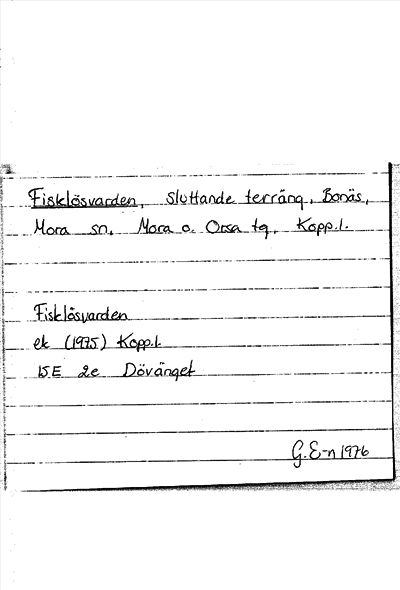 Fisklösvarden, sluttande terräng, Bonäs,
Mora sn. Mora o. Orsa tg. Kopp.l.
Fisklösvarden
ek (1975) Kopp.l.
15E 2e Dövänget
G. E-n 1976